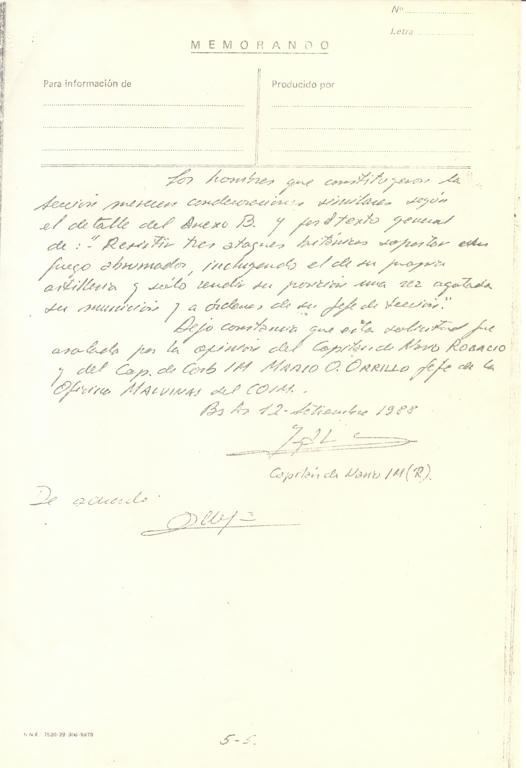 Nº
Letra
MEMORANDO
Para información de
Producido por
Los hombres que constituyeron la
Sección merecen condecoraciones similares según
el detalle del Anexo B. y por el texto general
de: "Resistir tres ataques británicos soportar un
fuego abrumador, incluyendo el de su propia
artillería y sólo rendir su posición una vez agotada
su munición y a órdenes de su Jefe de Sección."
Dejo constancia que esta solicitud fue
avalada por la opinión del Capitán de Navío ROBACIO
y del Cap. de Corb IM MARIO O. ORRILLO Jefe de la
Oficina MALVINAS del COIM.
Bs As 12-Setiembre 1988
Capitán de Navío IM (R).
De acuerdo:
5-5.